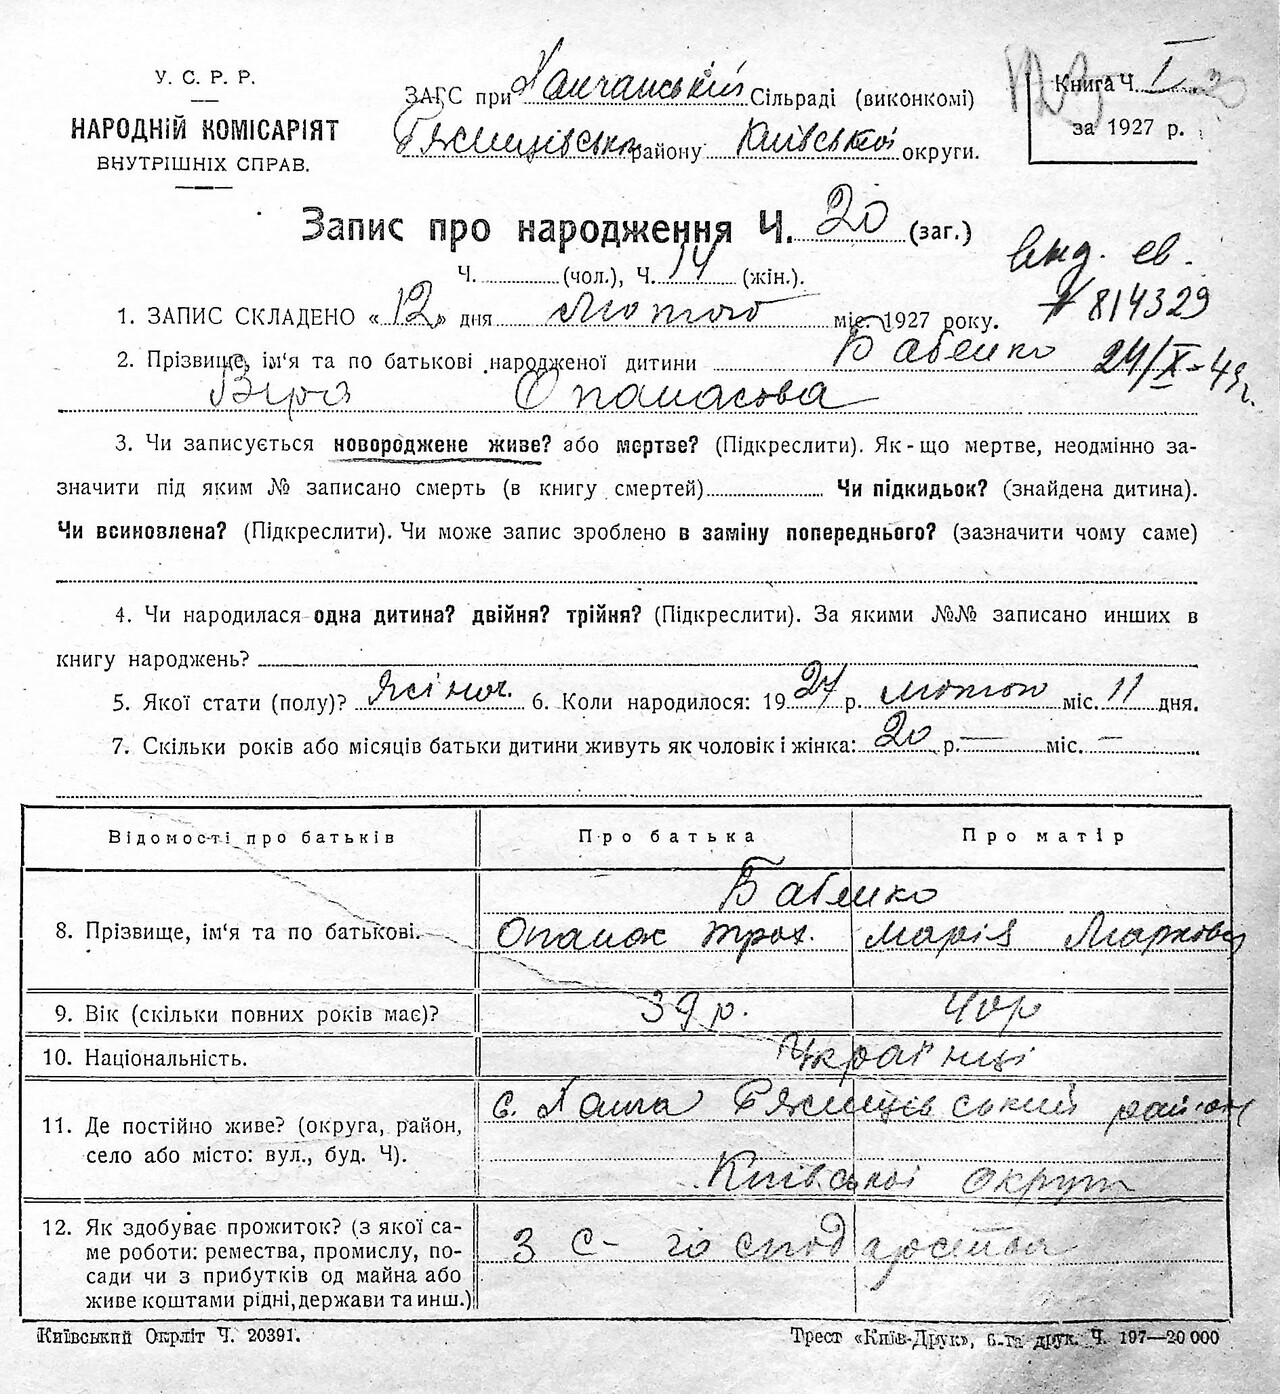 У. С. Р. Р.
НАРОДНІЙ КОМІСАРІЯТ
ВНУТРІШНІХ СПРАВ.
ЗАГС при Ханчанській Сільраді (виконкомі)
району Київської округи.
Книга Ч. I
за 1927 р.
Запис про народження Ч. 20 (заг.)
Ч. (чол.), Ч. 14 (жін.).
вид. св.
№ 814329
24/X-49г.
1. ЗАПИС СКЛАДЕНО «12» дня лютого міс. 1927 року.
2. Прізвище, ім'я та по батькові народженої дитини Бабенко
Віра Опанасова
3. Чи записується новороджене живе? або мертве? (Підкреслити). Як-що мертве, неодмінно за-
значити під яким № записано смерть (в книгу смертей) Чи підкидьок? (знайдена дитина).
Чи всиновлена? (Підкреслити). Чи може запис зроблено в заміну попереднього? (зазначити чому саме)
4. Чи народилася одна дитина? двійня? трійня? (Підкреслити). За якими №№ записано инших в
книгу народжень?
5. Якої стати (полу)? Жіноч. 6. Коли народилося: 1927 р. лютого міс. 11 дня.
7. Скільки років або місяців батьки дитини живуть як чоловік і жінка: 20 р. — міс. —
Відомості про батьків Про батька Про матір
Бабенко
8. Прізвище, ім'я та по батькові. Опанас Трох. Марія Маркова
9. Вік (скільки повних років має)? 39 р. 40 р
10. Національність. Українці
11. Де постійно живе? (округа, район,
село або місто: вул., буд. Ч).
с. район
Київської округи
12. Як здобуває прожиток? (з якої са-
ме роботи: ремества, промислу, по-
сади чи з прибутків од майна або
живе коштами рідні, держави та инш.)
З с- господарства
Київський Окрліт Ч. 20391.
Трест «Київ-Друк», 6-та друк. Ч. 197—20 000